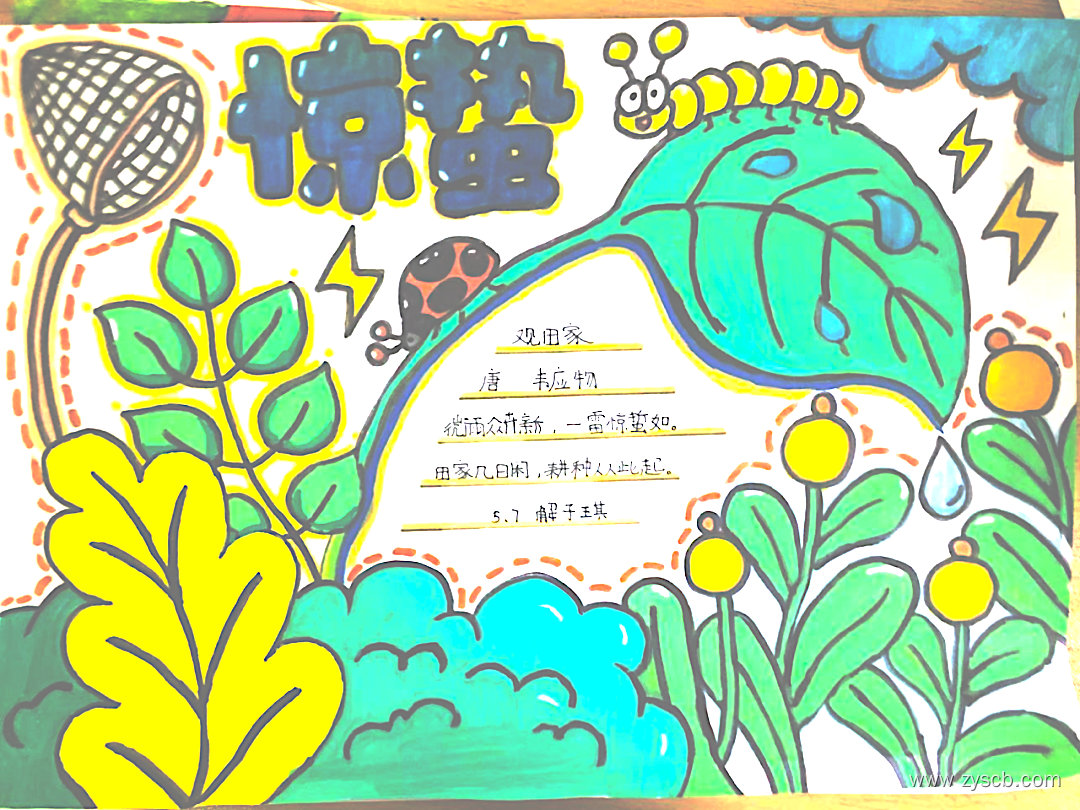 惊蛰
观田家
唐 韦应物
微雨众卉新,一雷惊蛰始。
田家几日闲,耕种从此起。
5.7 解子琪
www.zyscb.com